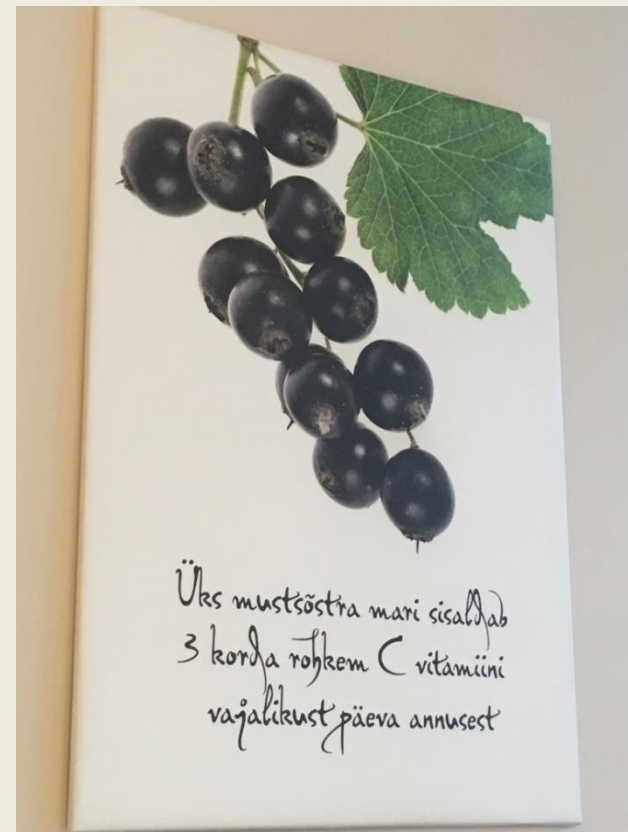 Üks mustsõstra mari sisaldab
3 korda rohkem C vitamiini
vajalikust päeva annusest